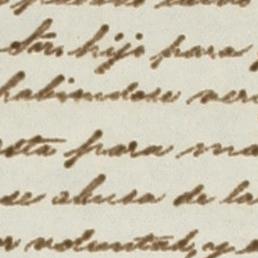 Sr. hijo para
habiendose veri
esta para ma
se abusa de la
or voluntad, y a